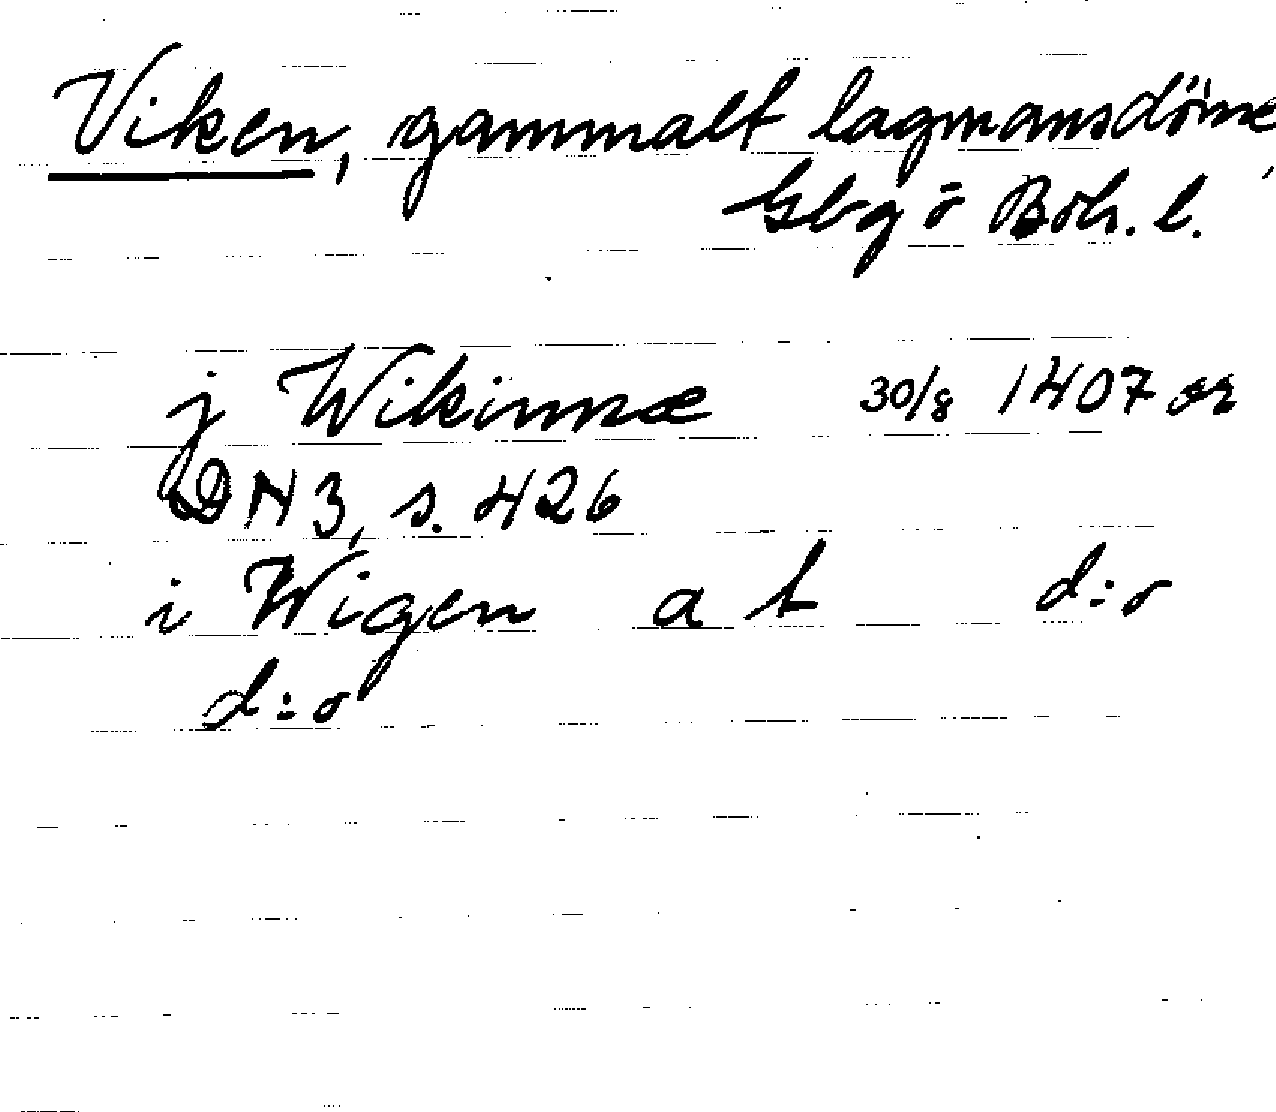 Viken, gammalt lagmansdöme,
Gbg o Boh. l.
j Wikinne 30/8 1407 or
DN 3, s. 426
i Wigen a t d:o
d:o